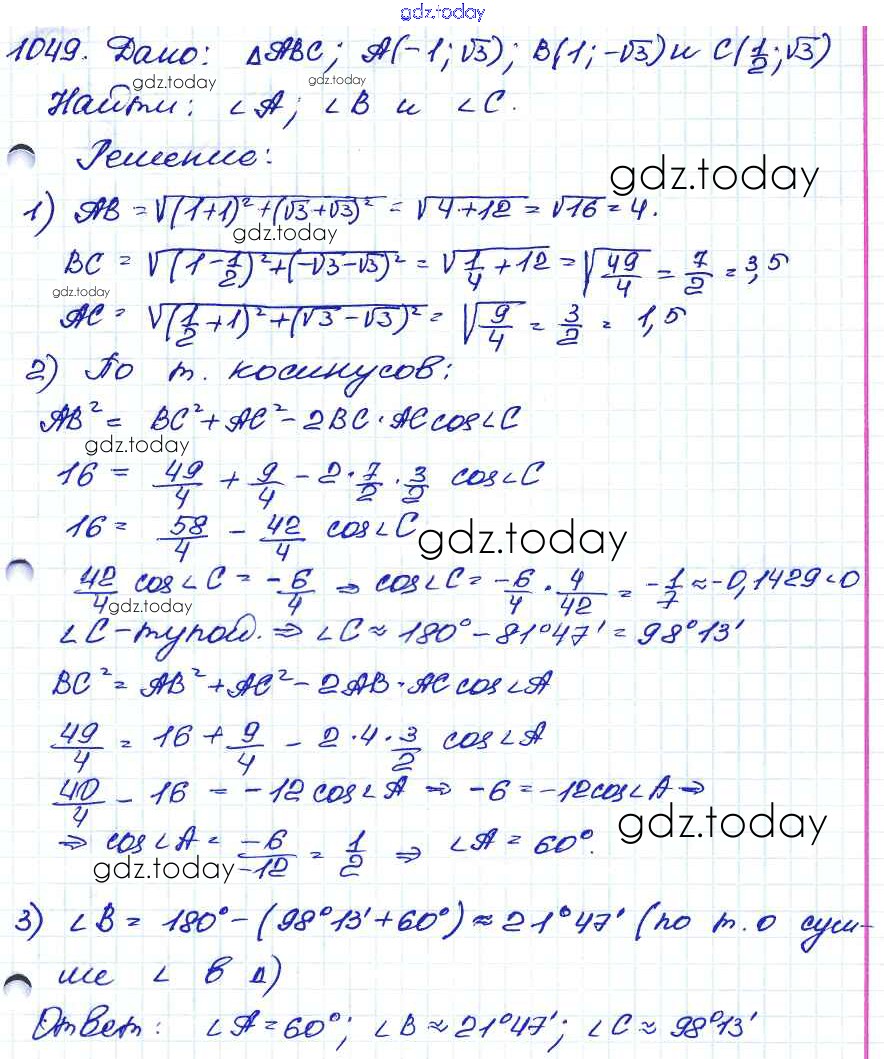 gdz.today
1049. Дано: ΔABC; A(-1; √3); B(1; -√3) и C(1/2; √3)
gdz.today gdz.today
Найти: ∠A; ∠B и ∠C.
Решение:
gdz.today
1) AB = √((1+1)²+(√3+√3)²) = √(4+12) = √16 = 4.
gdz.today
BC = √((1-1/2)²+(-√3-√3)²) = √(1/4+12) = √(49/4) = 7/2 = 3,5
gdz.today
AC = √((1/2+1)²+(√3-√3)²) = √(9/4) = 3/2 = 1,5
2) По т. косинусов:
AB² = BC²+AC²-2BC·AC cos∠C
gdz.today
16 = 49/4 + 9/4 - 2·7/2·3/2 cos∠C
16 = 58/4 - 42/4 cos∠C
gdz.today
42/4 cos∠C = -6/4 ⇒ cos∠C = -6/4 · 4/42 = -1/7 ≈ -0,1429<0
gdz.today
∠C-тупой. ⇒ ∠C ≈ 180°-81°47' = 98°13'
BC² = AB²+AC²-2AB·AC cos∠A
49/4 = 16 + 9/4 - 2·4·3/2 cos∠A
40/4 - 16 = -12cos∠A ⇒ -6 = -12cos∠A ⇒
gdz.today
⇒ cos∠A = -6/-12 = 1/2 ⇒ ∠A = 60°.
gdz.today
3) ∠B = 180°-(98°13'+60°) ≈ 21°47' (по т. о сум-
ме ∠ в Δ)
Ответ: ∠A=60°; ∠B≈21°47'; ∠C≈98°13'